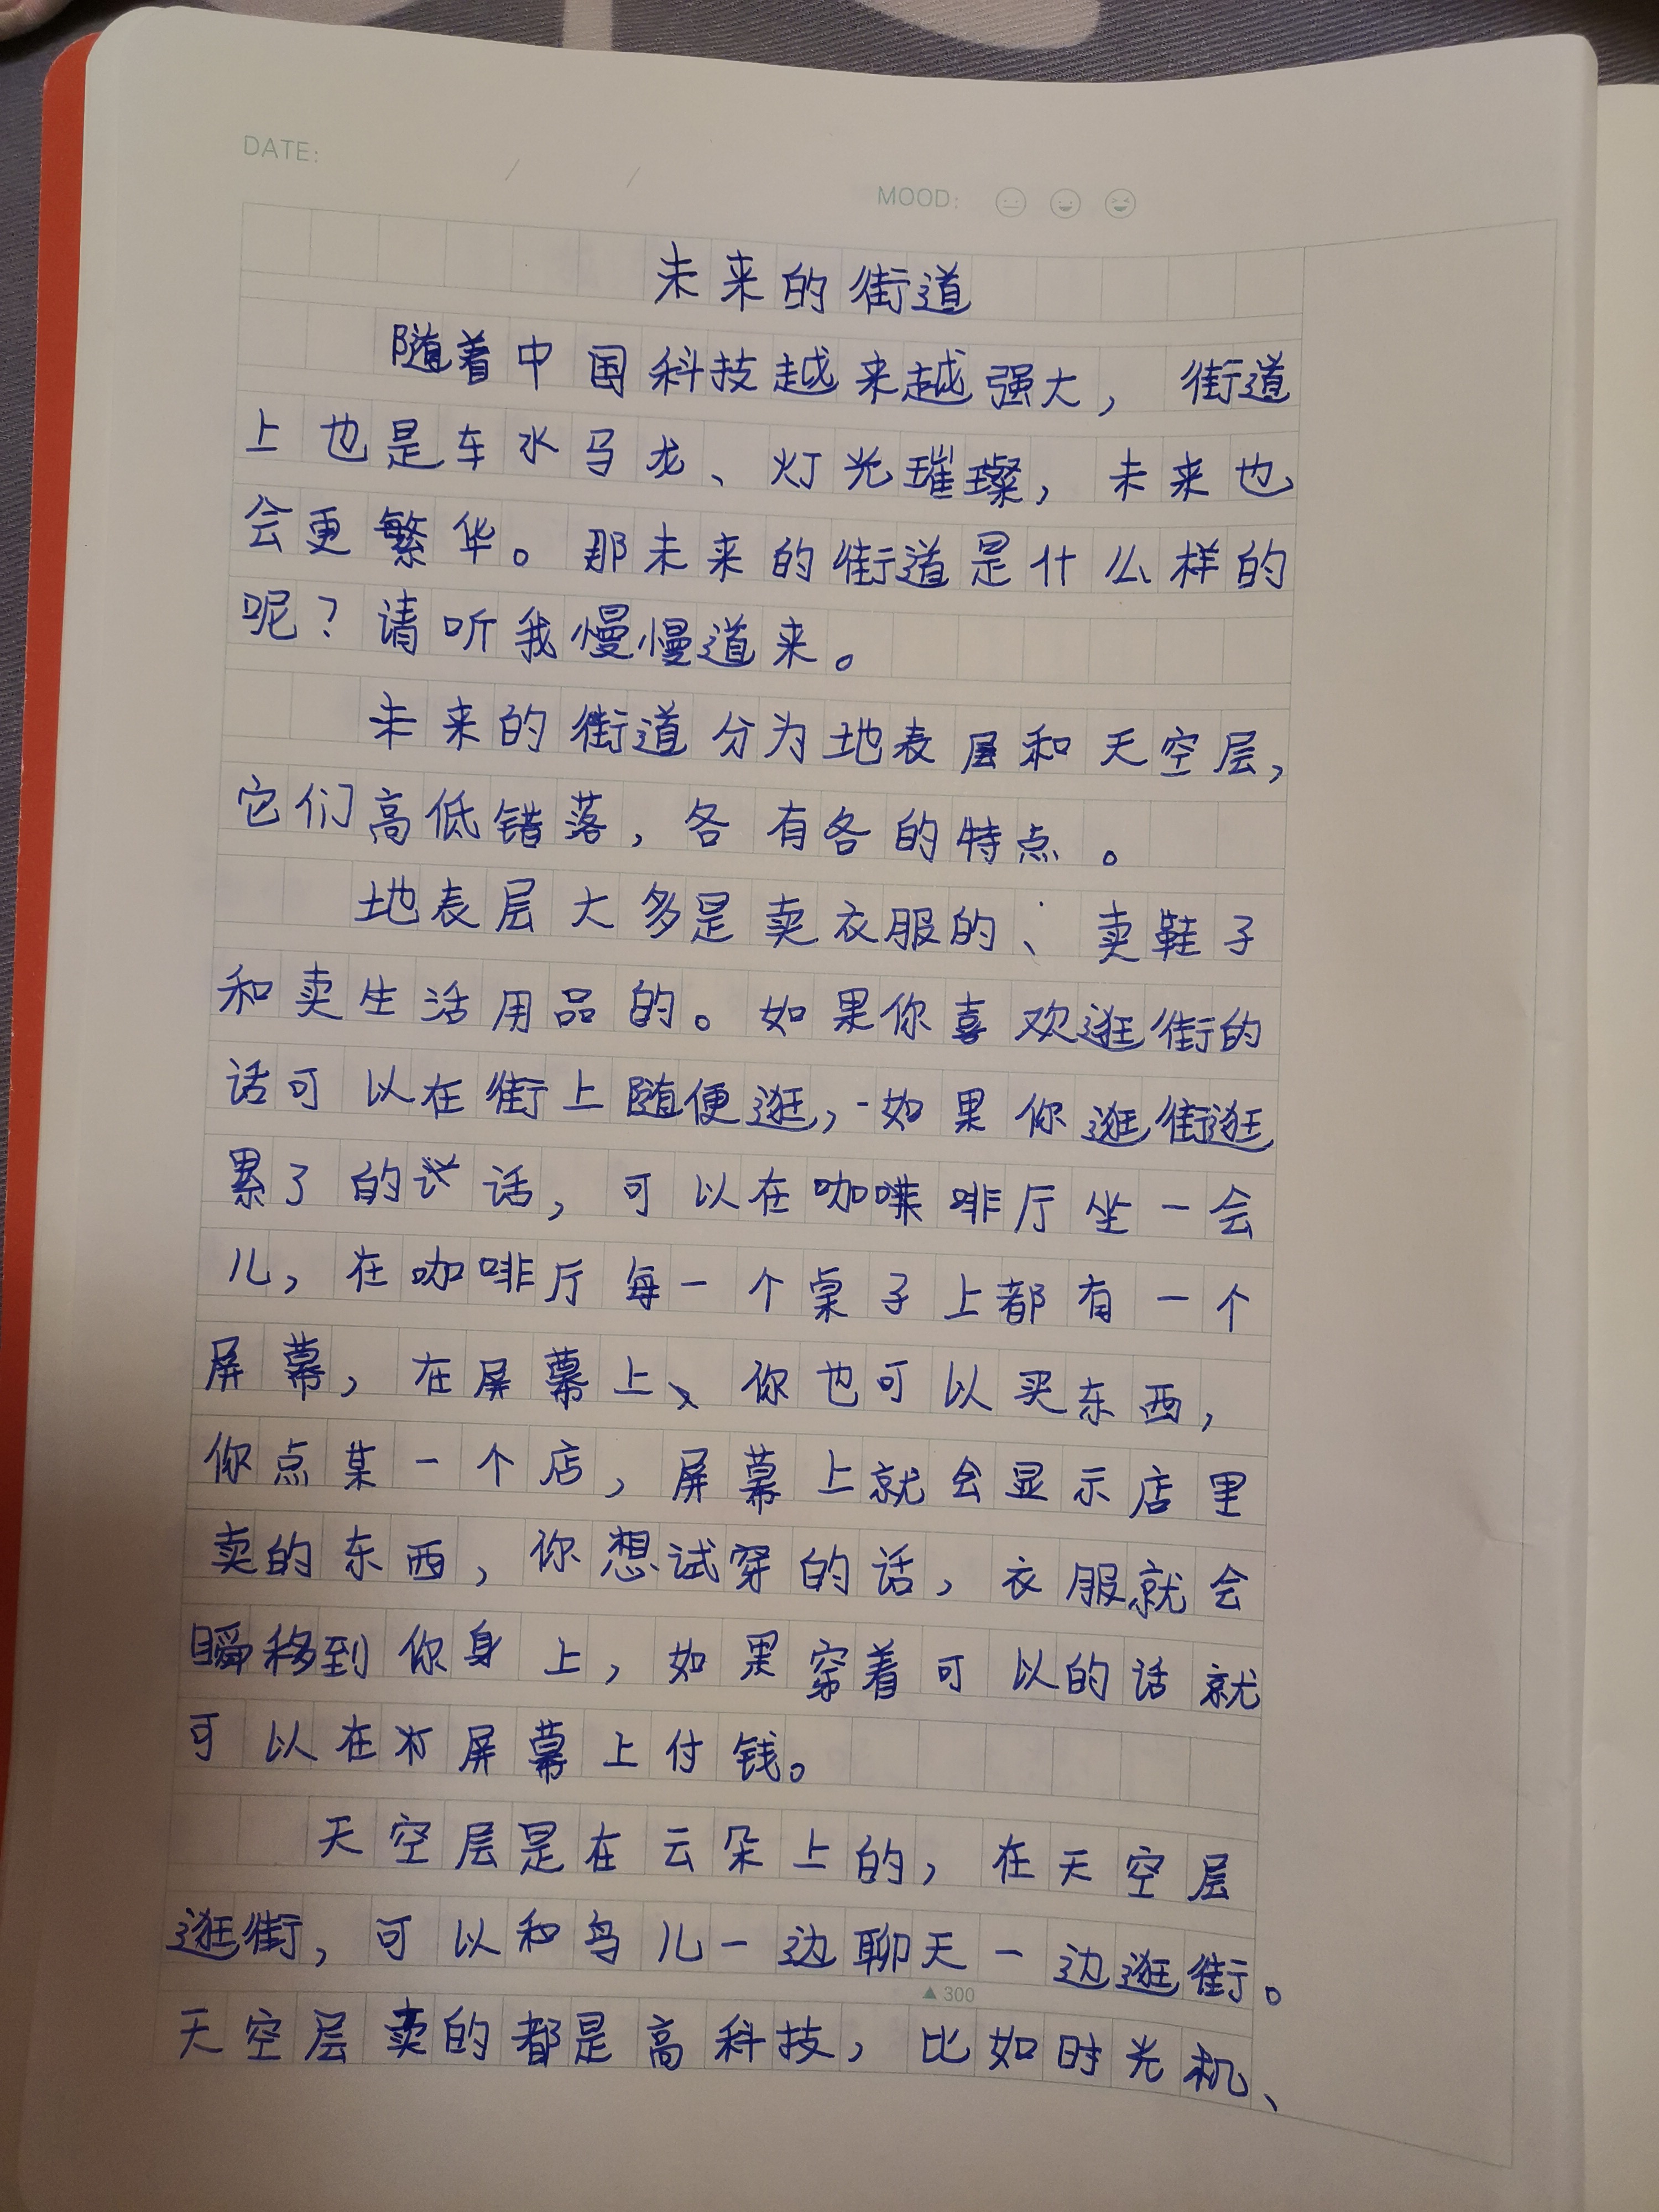 DATE: / /
MOOD:
未来的街道
随着中国科技越来越强大，街道
上也是车水马龙、灯光璀璨，未来也
会更繁华。那未来的街道是什么样的
呢？请听我慢慢道来。
未来的街道分为地表层和天空层，
它们高低错落，各有各的特点。
地表层大多是卖衣服的、卖鞋子
和卖生活用品的。如果你喜欢逛街的
话可以在街上随便逛，如果你逛街逛
累了的话，可以在咖啡厅坐一会
儿，在咖啡厅每一个桌子上都有一个
屏幕，在屏幕上、你也可以买东西，
你点某一个店，屏幕上就会显示店里
卖的东西，你想试穿的话，衣服就会
瞬移到你身上，如果穿着可以的话就
可以在屏幕上付钱。
天空层是在云朵上的，在天空层
逛街，可以和鸟儿一边聊天一边逛街。
▲300
天空层卖的都是高科技，比如时光机、